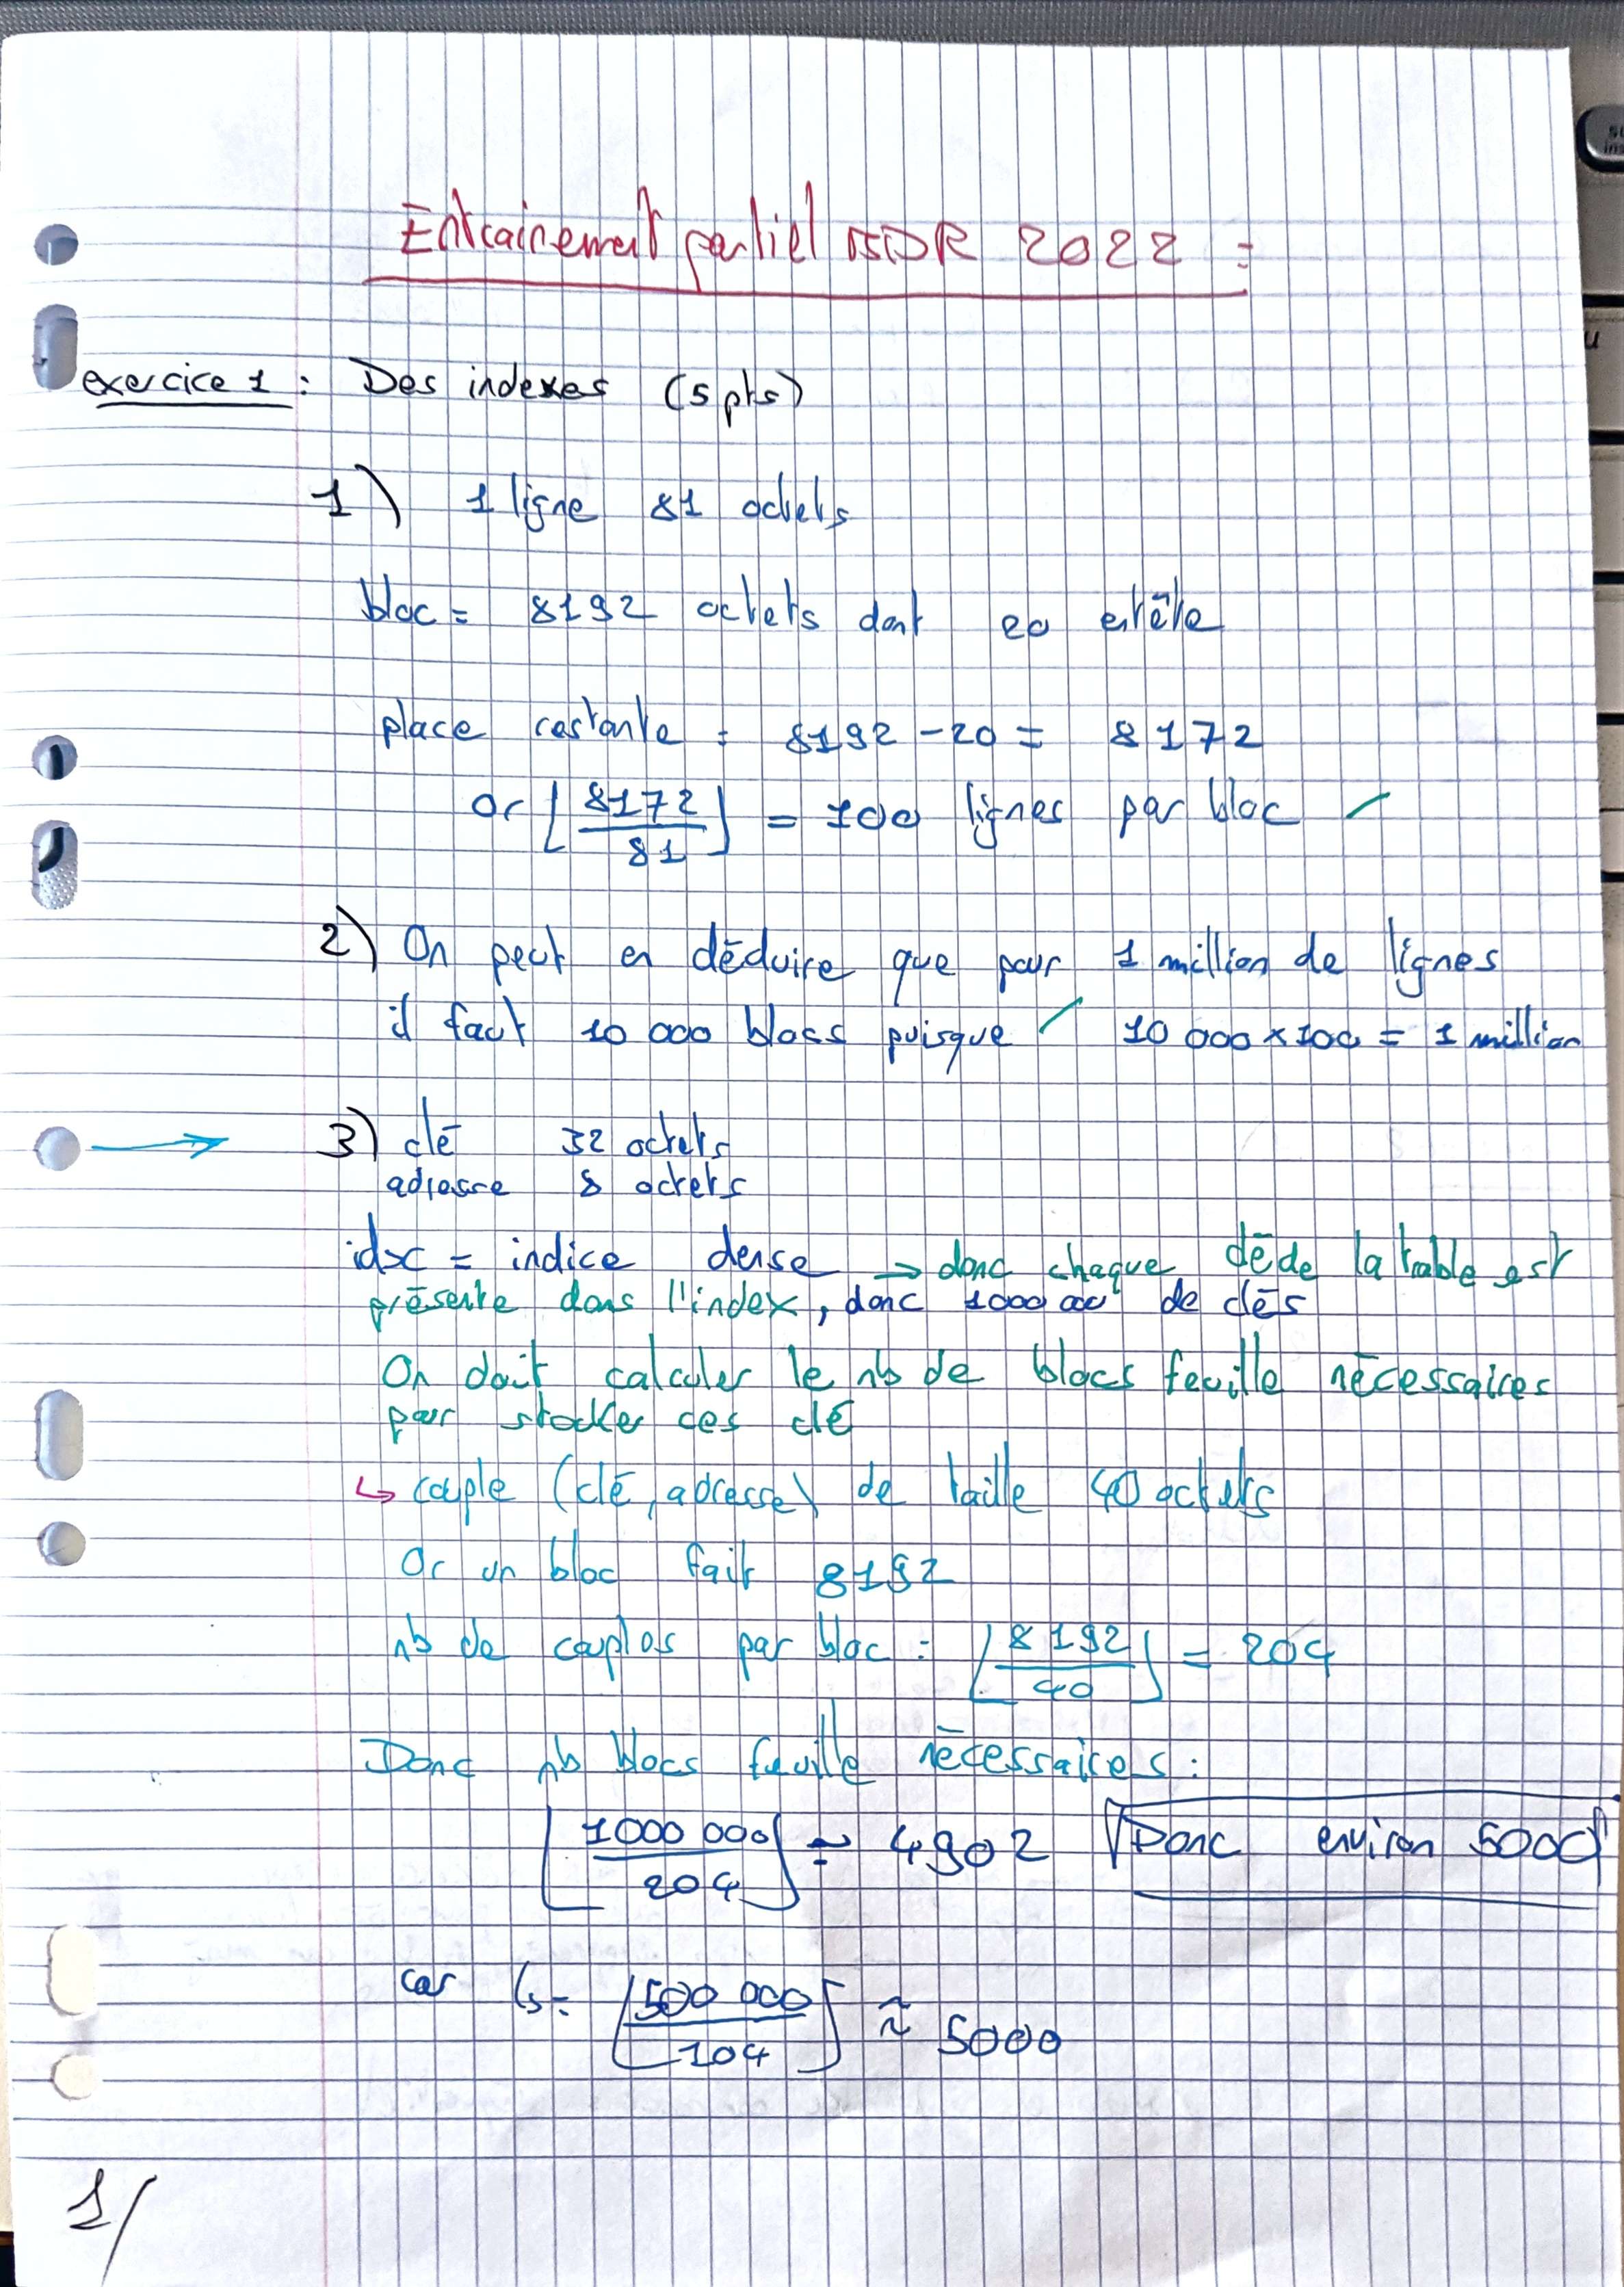 Entrainement partiel BDR 2022 :
exercice 1 : Des indexes (5 pts)
1) 1 ligne 81 octets
bloc = 8192 octets dont 20 entête
place restante : 8192 - 20 = 8172
Or ⌊8172/81⌋ = 100 lignes par bloc ✓
2) On peut en déduire que pour 1 million de lignes
il faut 10 000 blocs puisque ✓ 10 000 x 100 = 1 million
→ 3) clé 32 octets
adresse 8 octets
idx = indice dense → donc chaque clé de la table est
présente dans l'index, donc 1000 000 de clés
On doit calculer le nb de blocs feuille nécessaires
pour stocker ces clé
↳ couple (clé, adresse) de taille 40 octets
Or un bloc fait 8192
nb de couples par bloc : ⌊8192/40⌋ = 204
Donc nb blocs feuille nécessaires :
⌊1000 000/204⌋ = 4902 Donc environ 5000
car ⌊500 000/104⌋ ≈ 5000
1/